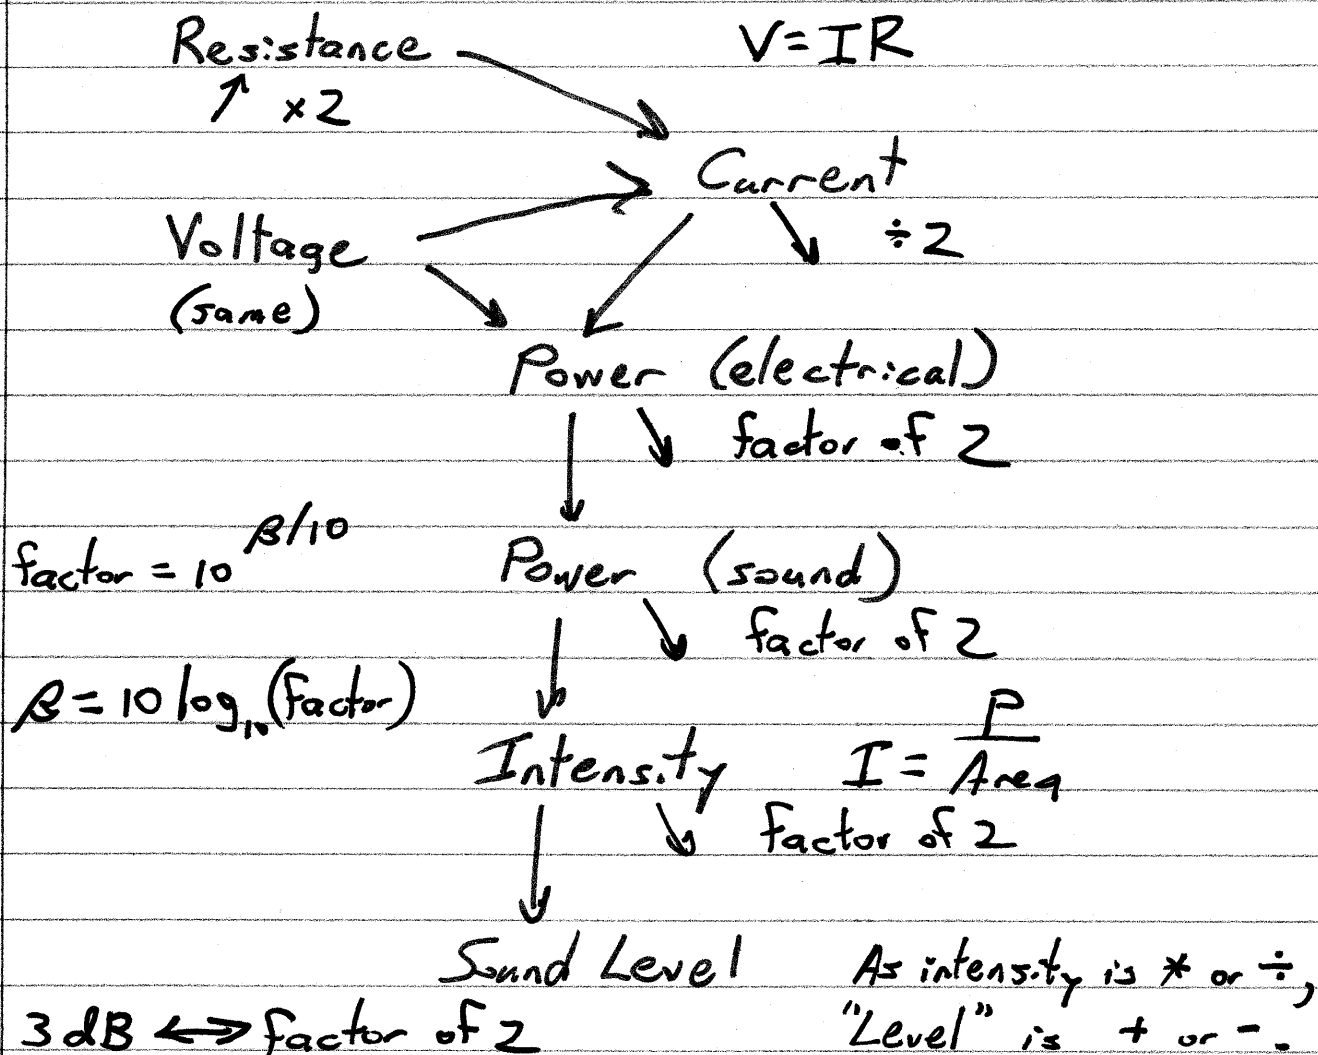 Resistance V=IR
↑ ×2
Current
÷2
Voltage
(same)
Power (electrical)
factor of 2
factor = 10^β/10
Power (sound)
factor of 2
β = 10 log₁₀(factor)
Intensity I = P/Area
factor of 2
Sound Level As intensity is * or ÷,
3 dB ⟷ factor of 2 "Level" is + or -.